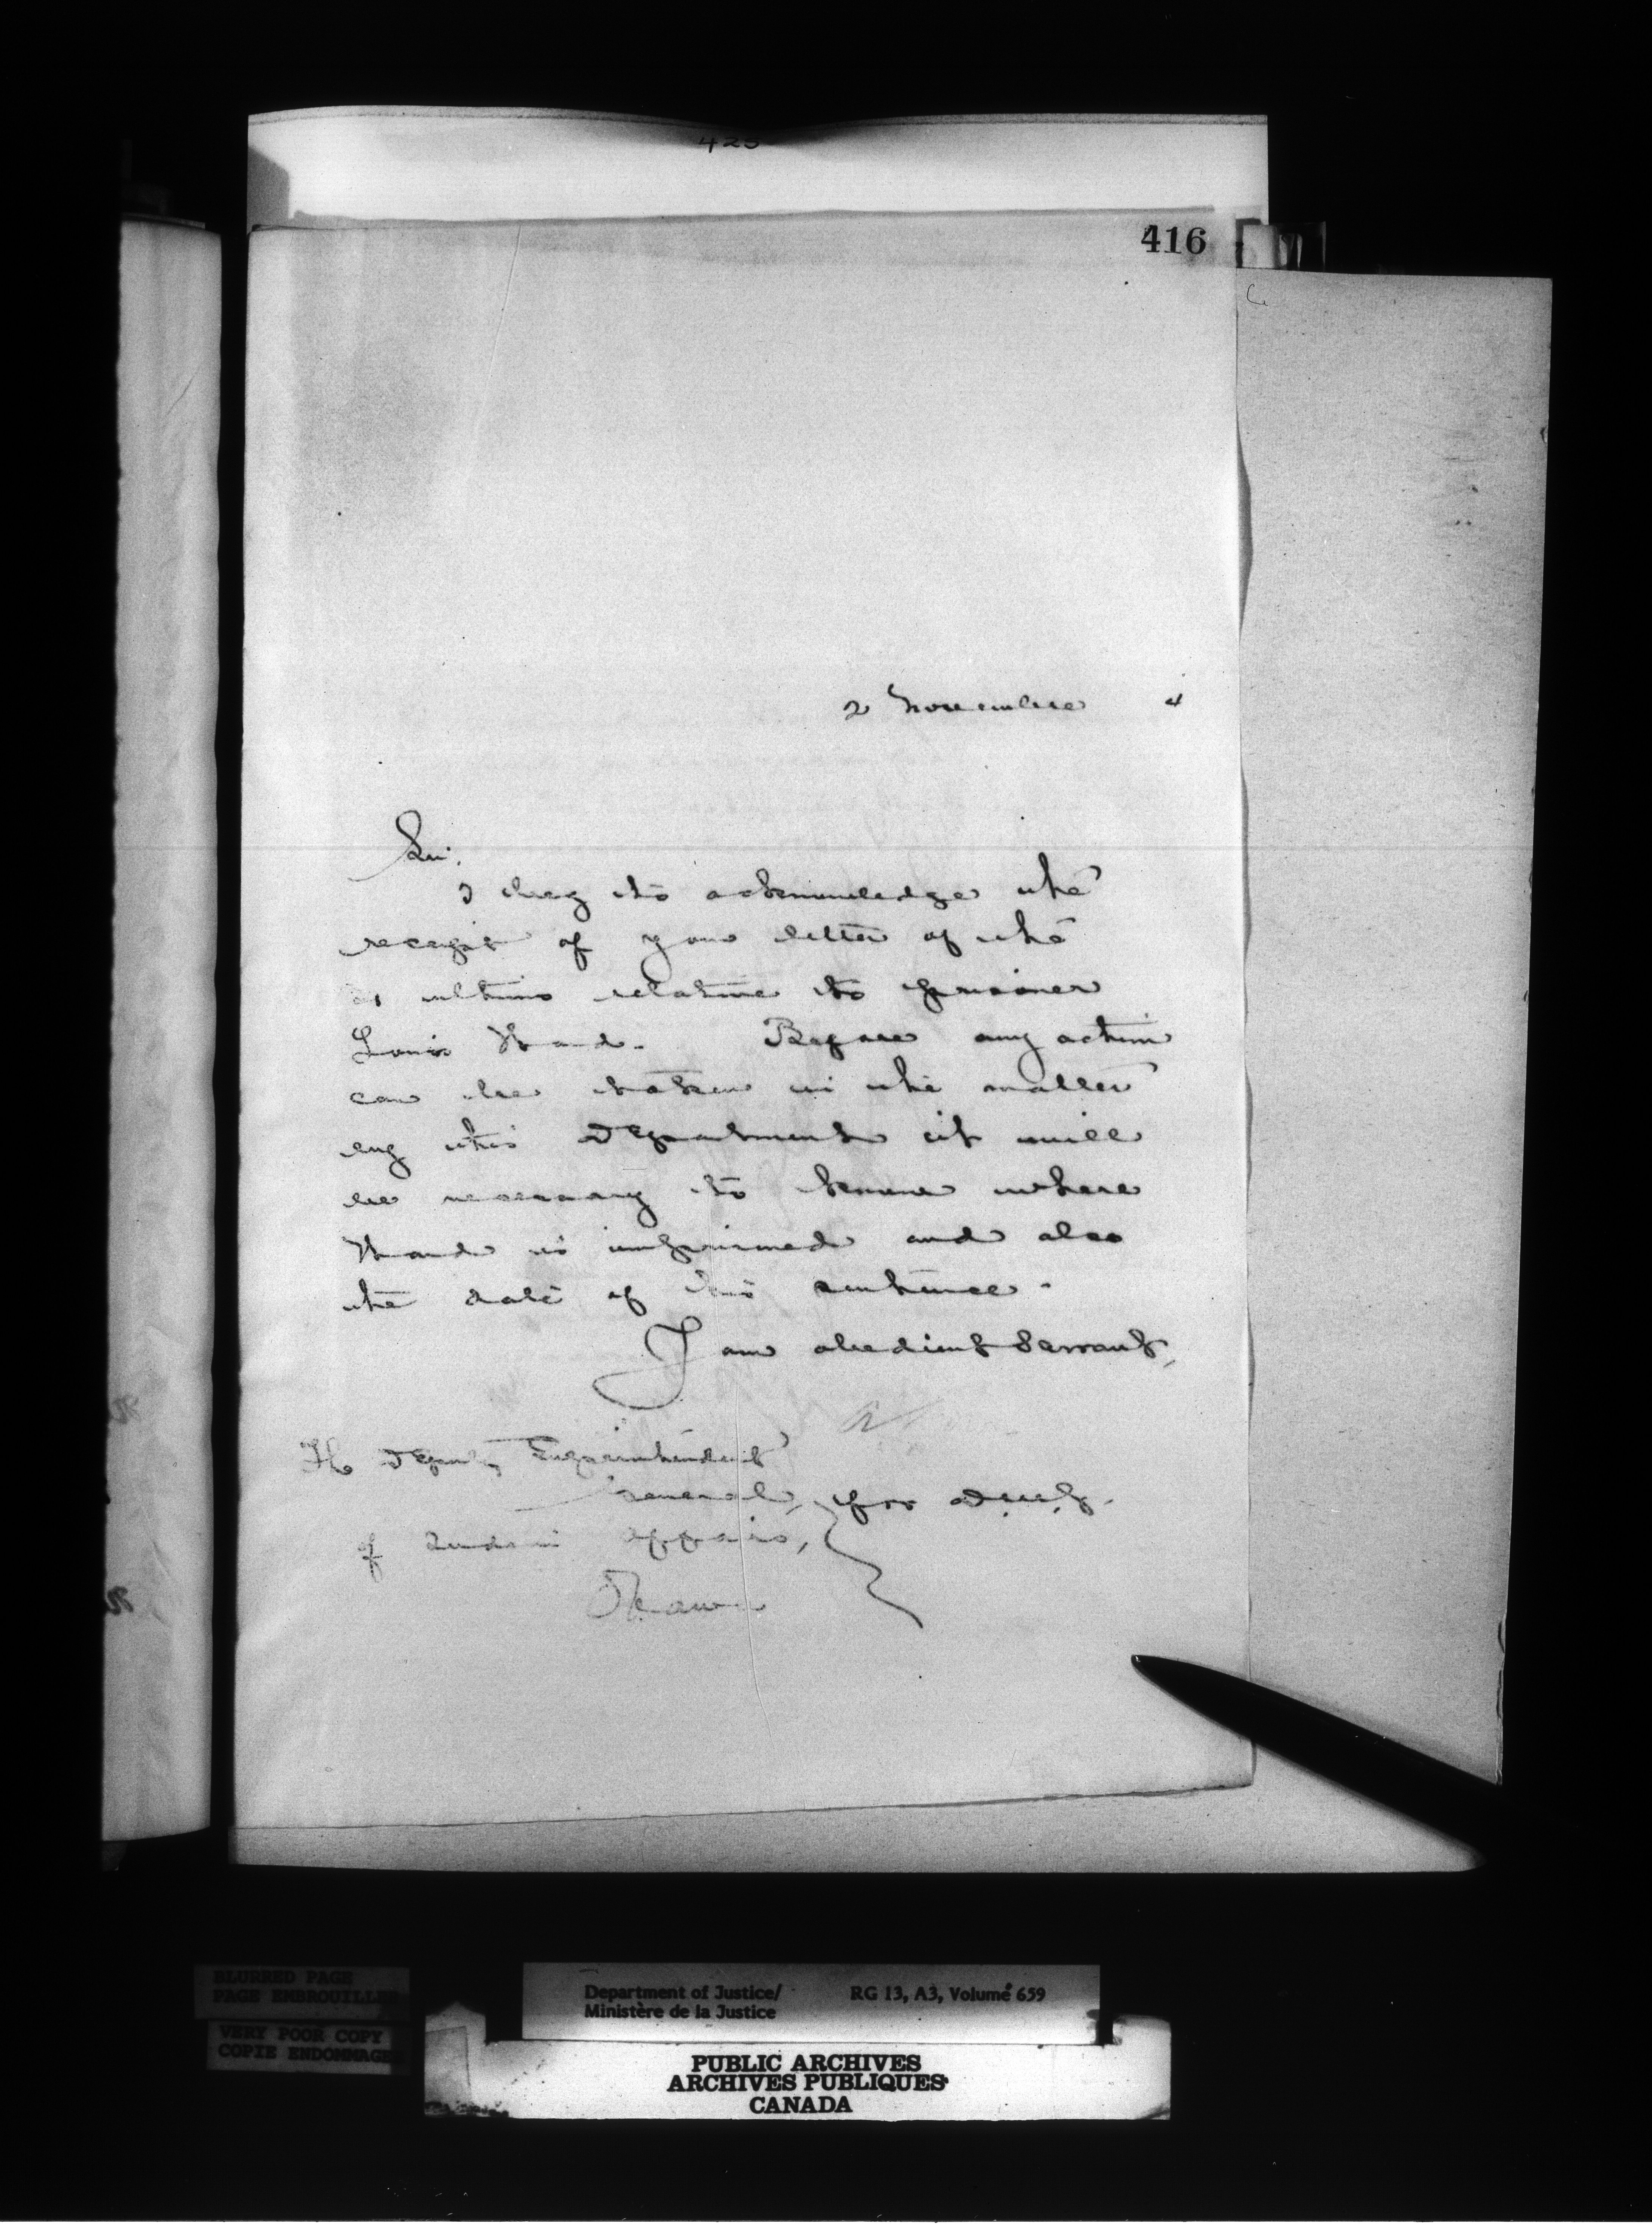 425
416
2 November 4
Sir,
I beg to acknowledge the
receipt of your letter of the
31 ultimo relative to prisoner
Louis Ward. Before any action
can be taken in the matter
by this Department it will
be necessary to know where
Ward is imprisoned and also
the date of his sentence.
I am obedient Servant,
The Deputy Superintendent
General, for D.M.J.
of Indian Affairs,
Ottawa
BLURRED PAGE
PAGE EMBROUILLEE
VERY POOR COPY
COPIE ENDOMMAGE
Department of Justice/ RG 13, A3, Volume 659
Ministère de la Justice
PUBLIC ARCHIVES
ARCHIVES PUBLIQUES
CANADA